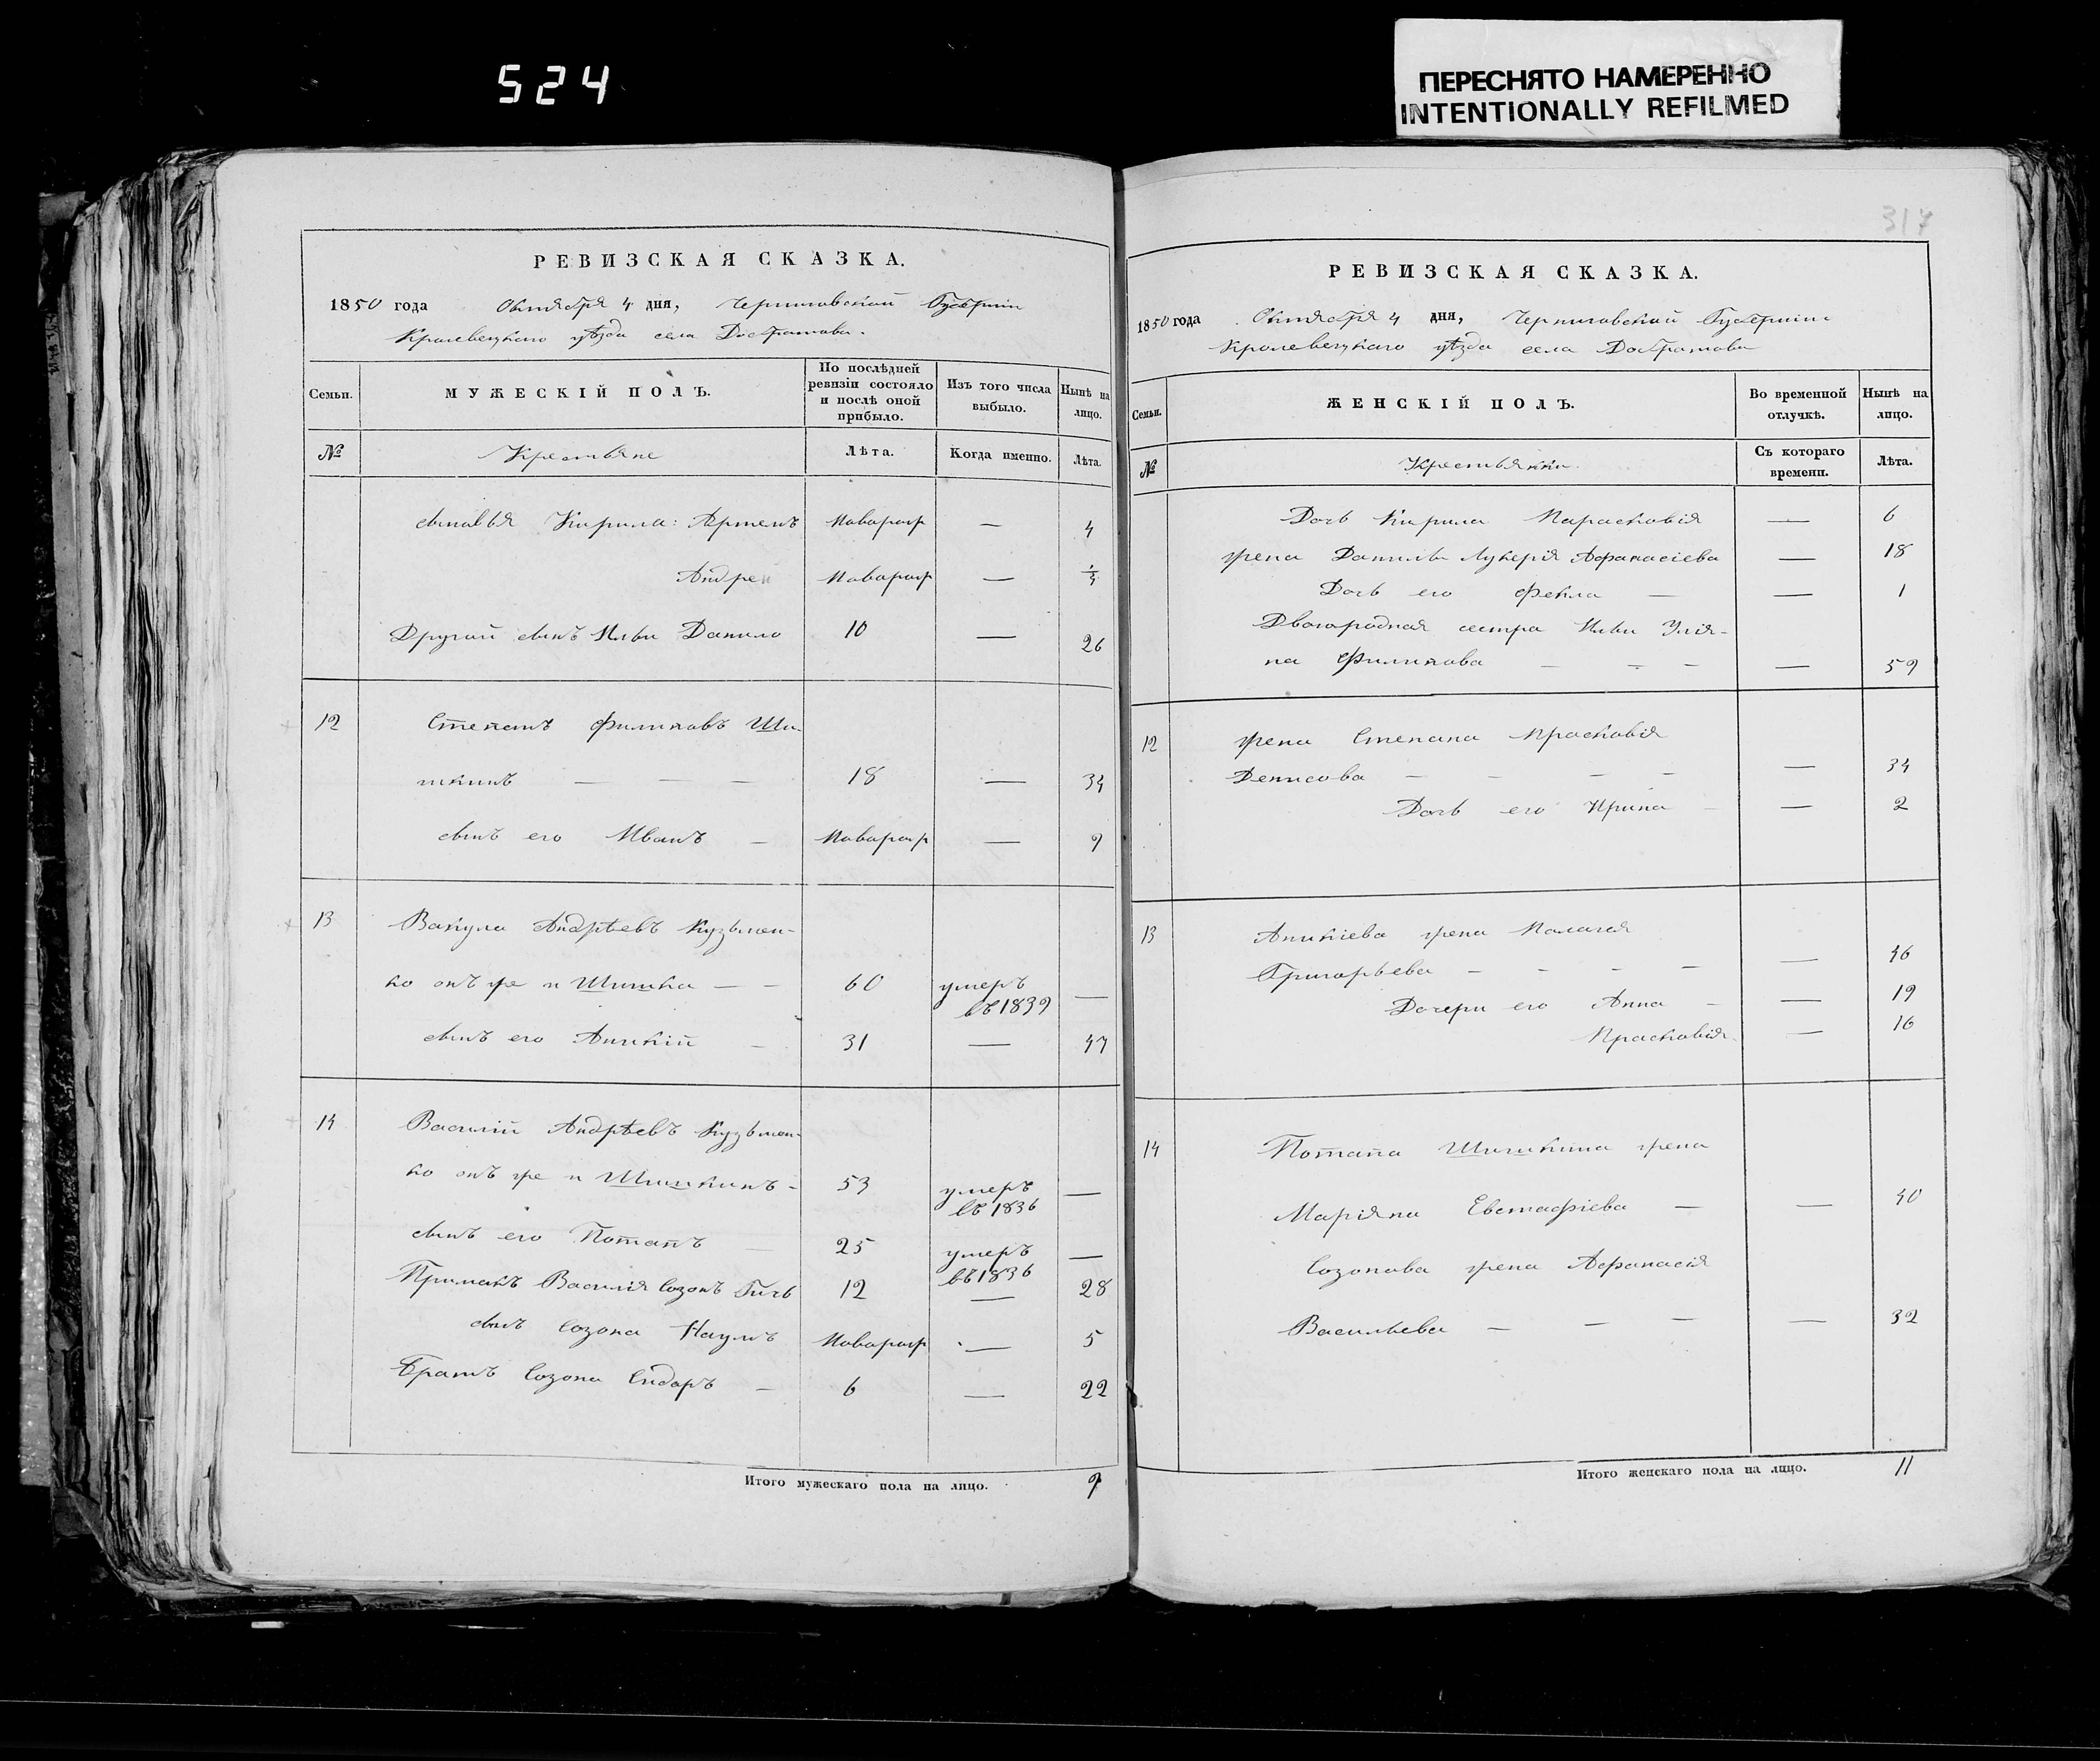 524
ПЕРЕСНЯТО НАМЕРЕННО
INTENTIONALLY REFILMED
РЕВИЗСКАЯ СКАЗКА.
1850 года Октября 4 дня, Черниговской Губернии
Кролевецкаго уѣзда села Добротова.
Семьи. МУЖЕСКІЙ ПОЛЪ. По послѣдней ревизіи состояло и послѣ оной прибыло. Изъ того числа выбыло. Нынѣ на лицо.
№ Крестьяне Лѣта. Когда именно. Лѣта.
сыновья Кирила: Артемъ Новорож — 4
Андрей Новорож —
Другой сынъ Ильи Данило 10 — 26
12 Степанъ Филиповъ Ши-
шкинъ — — — 18 — 34
сынъ его Иванъ — Новорож — 9
13 Вакула Андрѣевъ Кузьмен-
ко онъ же и Шишка — — 60 умеръ въ 1839 —
сынъ его Аникій — 31 — 47
14 Василій Андрѣевъ Кузьмен-
ко онъ же и Шишкинъ - 53 умеръ въ 1836 —
сынъ его Потапъ — 25 умеръ въ 1836 —
Примакъ Василія Созонъ 12 — 28
сынъ Созона Наумъ Новорож — 5
Братъ Созона Сидоръ — 6 — 22
Итого мужескаго пола на лицо. 9
317
РЕВИЗСКАЯ СКАЗКА.
1850 года Октября 4 дня, Черниговской Губернии
Кролевецкаго уѣзда села Добротова
Семьи. ЖЕНСКІЙ ПОЛЪ. Во временной отлучкѣ. Нынѣ на лицо.
№ Крестьянки Съ котораго времени. Лѣта.
Дочь Кирила Парасковія — 6
жена Данилы Лукерія Афанасіева — 18
Дочь его Фекла — — 1
Двоюродная сестра Ильи Улія-
на Филипова — — — — 59
12 жена Степана Прасковія
Денисова — — — — — 34
Дочь его Ирина — — 2
13 Аникіева жена Палагея
Григорьева — — — — — 46
Дочери его Анна — — 19
Прасковія — 16
14 Потапа Шишкина жена
Маріяна Евстафіева — — 40
Созонова жена Афанасія
Васильева — — — — 32
Итого женскаго пола на лицо. 11